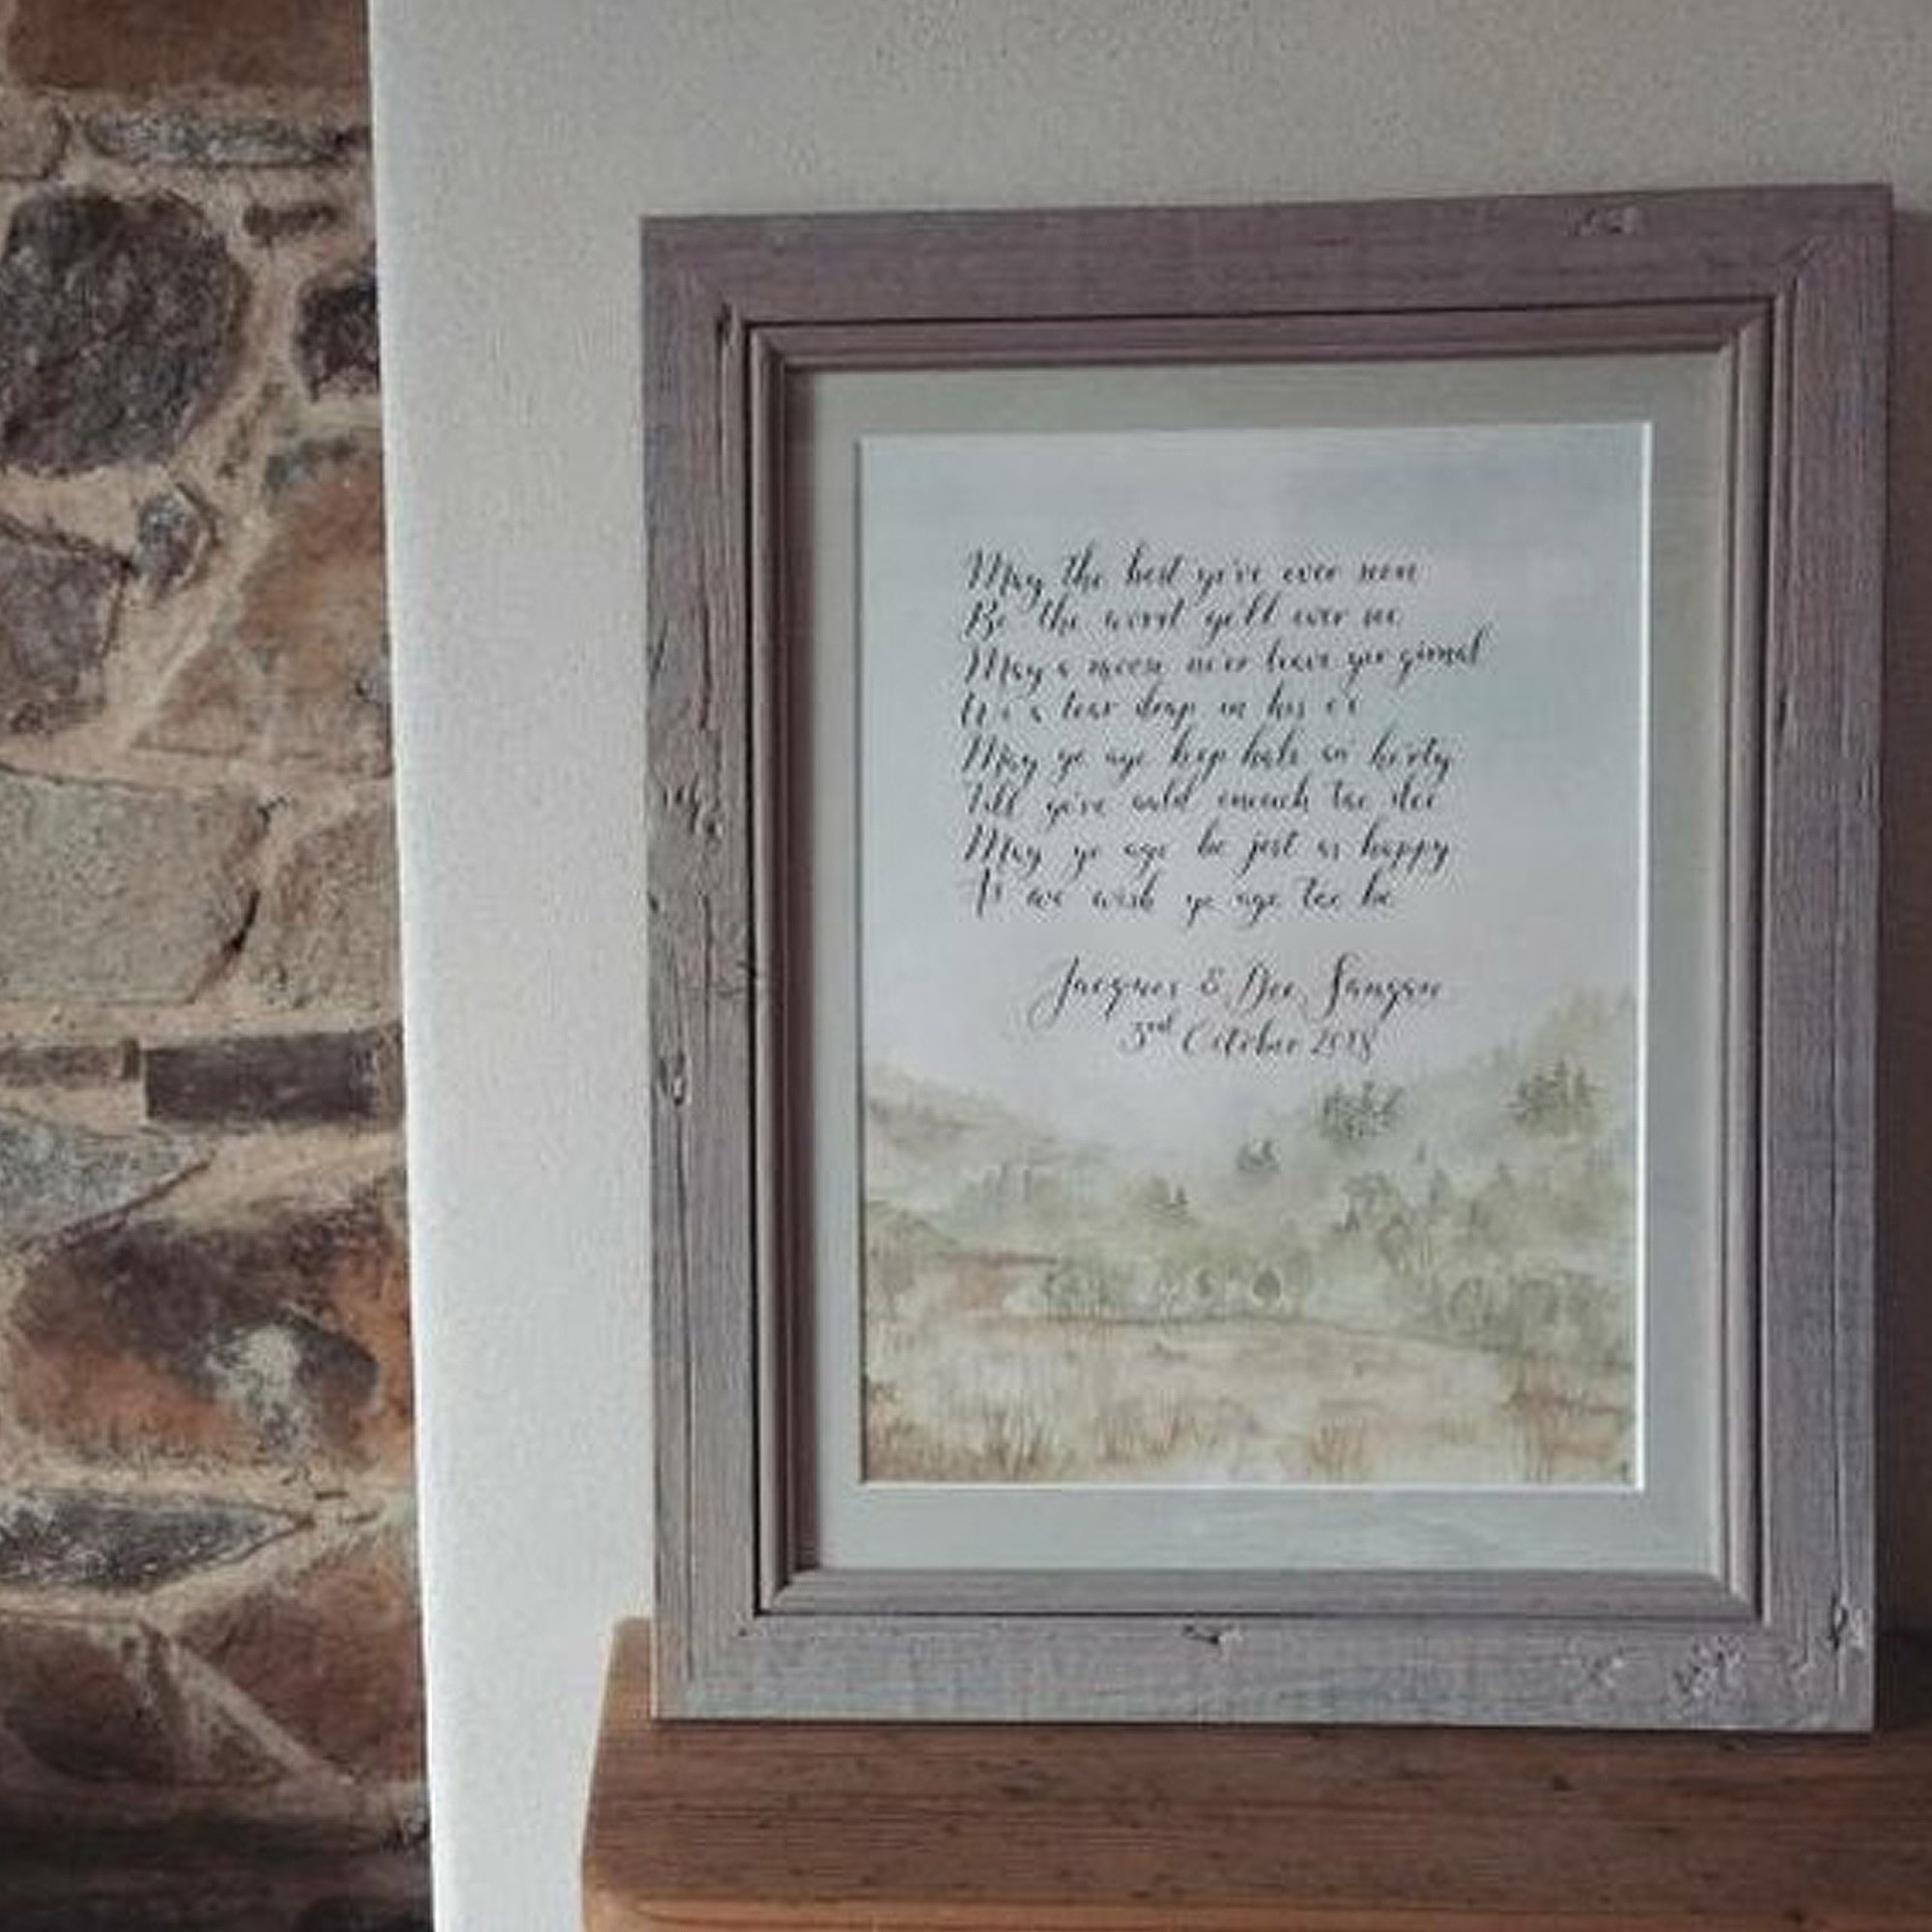 May the best ye've ever seen
Be the worst ye'll ever see
May a moose ne'er leave yer girnal
Wi a tear drap in his ee
May ye aye keep hale an' herty
Till ye're auld eneuch tae dee
May ye aye be jist as happy
As we wish ye aye tae be
Jacques & Dee
3rd October 2018